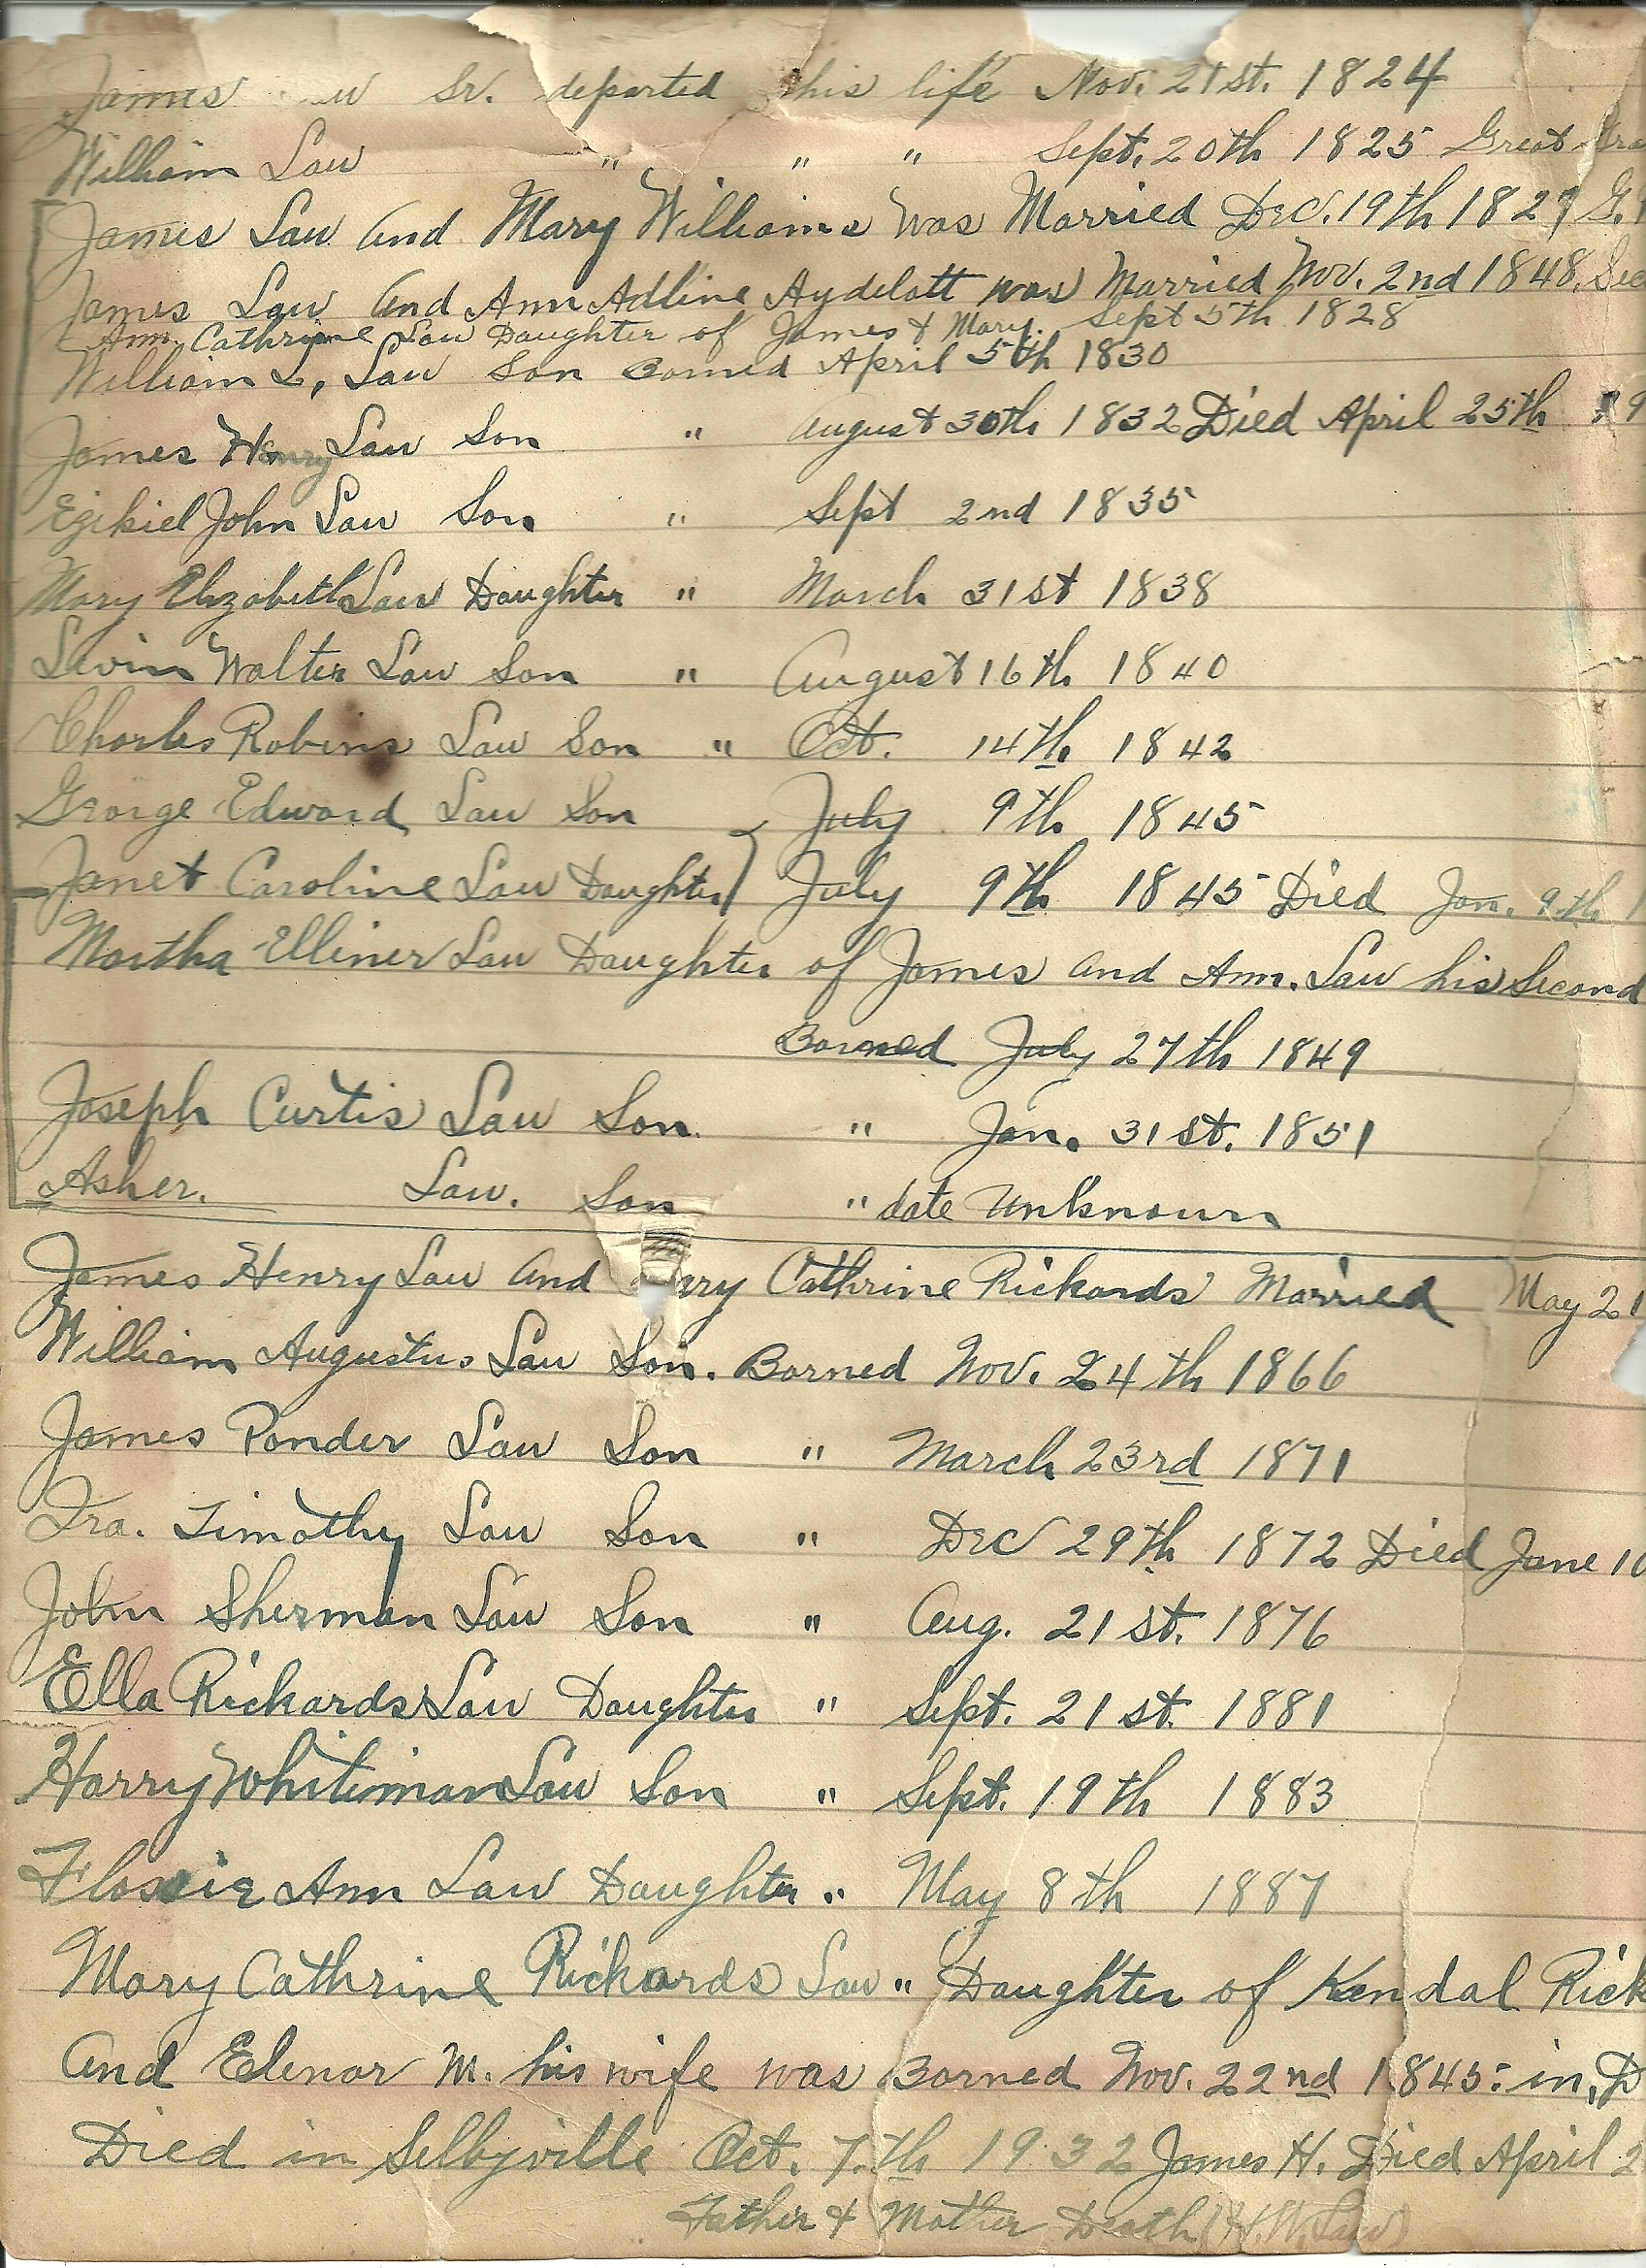 James Sr. departed this life Nov. 21st. 1824
William Law " " " Sept. 20th 1825 Great Gra
James Law and Mary Williams was Married Dec. 19th 1827 G.
James Law and Ann Adline Aydelott was Married Nov. 2nd 1848. Sec
Ann Cathrine Law Daughter of James & Mary. Sept 5th 1828
William L, Law Son Borned April 5th 1830
James Henry Law Son " August 30th 1832 Died April 25th 19
Ezikiel John Law Son " Sept 2nd 1835
Mary Elizabeth Law Daughter " March 31st 1838
Levin Walter Law Son " August 16th 1840
Charles Robins Law Son " Oct. 14th 1842
George Edward Law Son July 9th 1845
Janet Caroline Law Daughter July 9th 1845 Died Jan. 9th 1
Martha Elliner Law Daughter of James and Ann. Law his Second
Borned July 27th 1849
Joseph Curtis Law Son. " Jan. 31st. 1851
Asher. Law. Son " date Unknown
James Henry Law and Mary Cathrine Rickards Married May 21
William Augustus Law Son. Borned Nov. 24th 1866
James Ponder Law Son " March 23rd 1871
Ira. Timothy Law Son " Dec 29th 1872 Died June 10
John Sherman Law Son " Aug. 21st. 1876
Ella Rickards Law Daughter " Sept. 21st. 1881
Harry Whiteman Law Son " Sept. 19th 1883
Flossie Ann Law Daughter " May 8th 1887
Mary Cathrine Rickards Law " Daughter of Kendal Rick
and Elenor M. his wife was Borned Nov. 22nd 1845: in, D
Died in Selbyville Oct. 7.th 1932 James H. Died April 2
Father & Mother Death (H.W. Law)